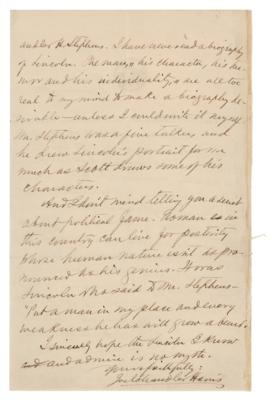 ander H. Stephens. I have never read a biography
of Lincoln. The man, his character, his hu-
mor and his individuality, are all too
real to my mind to make a biography de-
sirable — unless I could write it myself.
Mr. Stephens was a fine talker, and
he drew Lincoln's portrait for me
much as Scott draws some of his
characters.
And I don't mind telling you a secret
about political fame. No man in
this country can live for posterity
whose human nature isn't as pro-
nounced as his genius. It was
Lincoln who said to Mr. Stephens —
"Put a man in my place and every
weakness he has will grow a beard."
I sincerely hope the Lincoln I know
and admire is no myth.
Yours faithfully:
Joel Chandler Harris